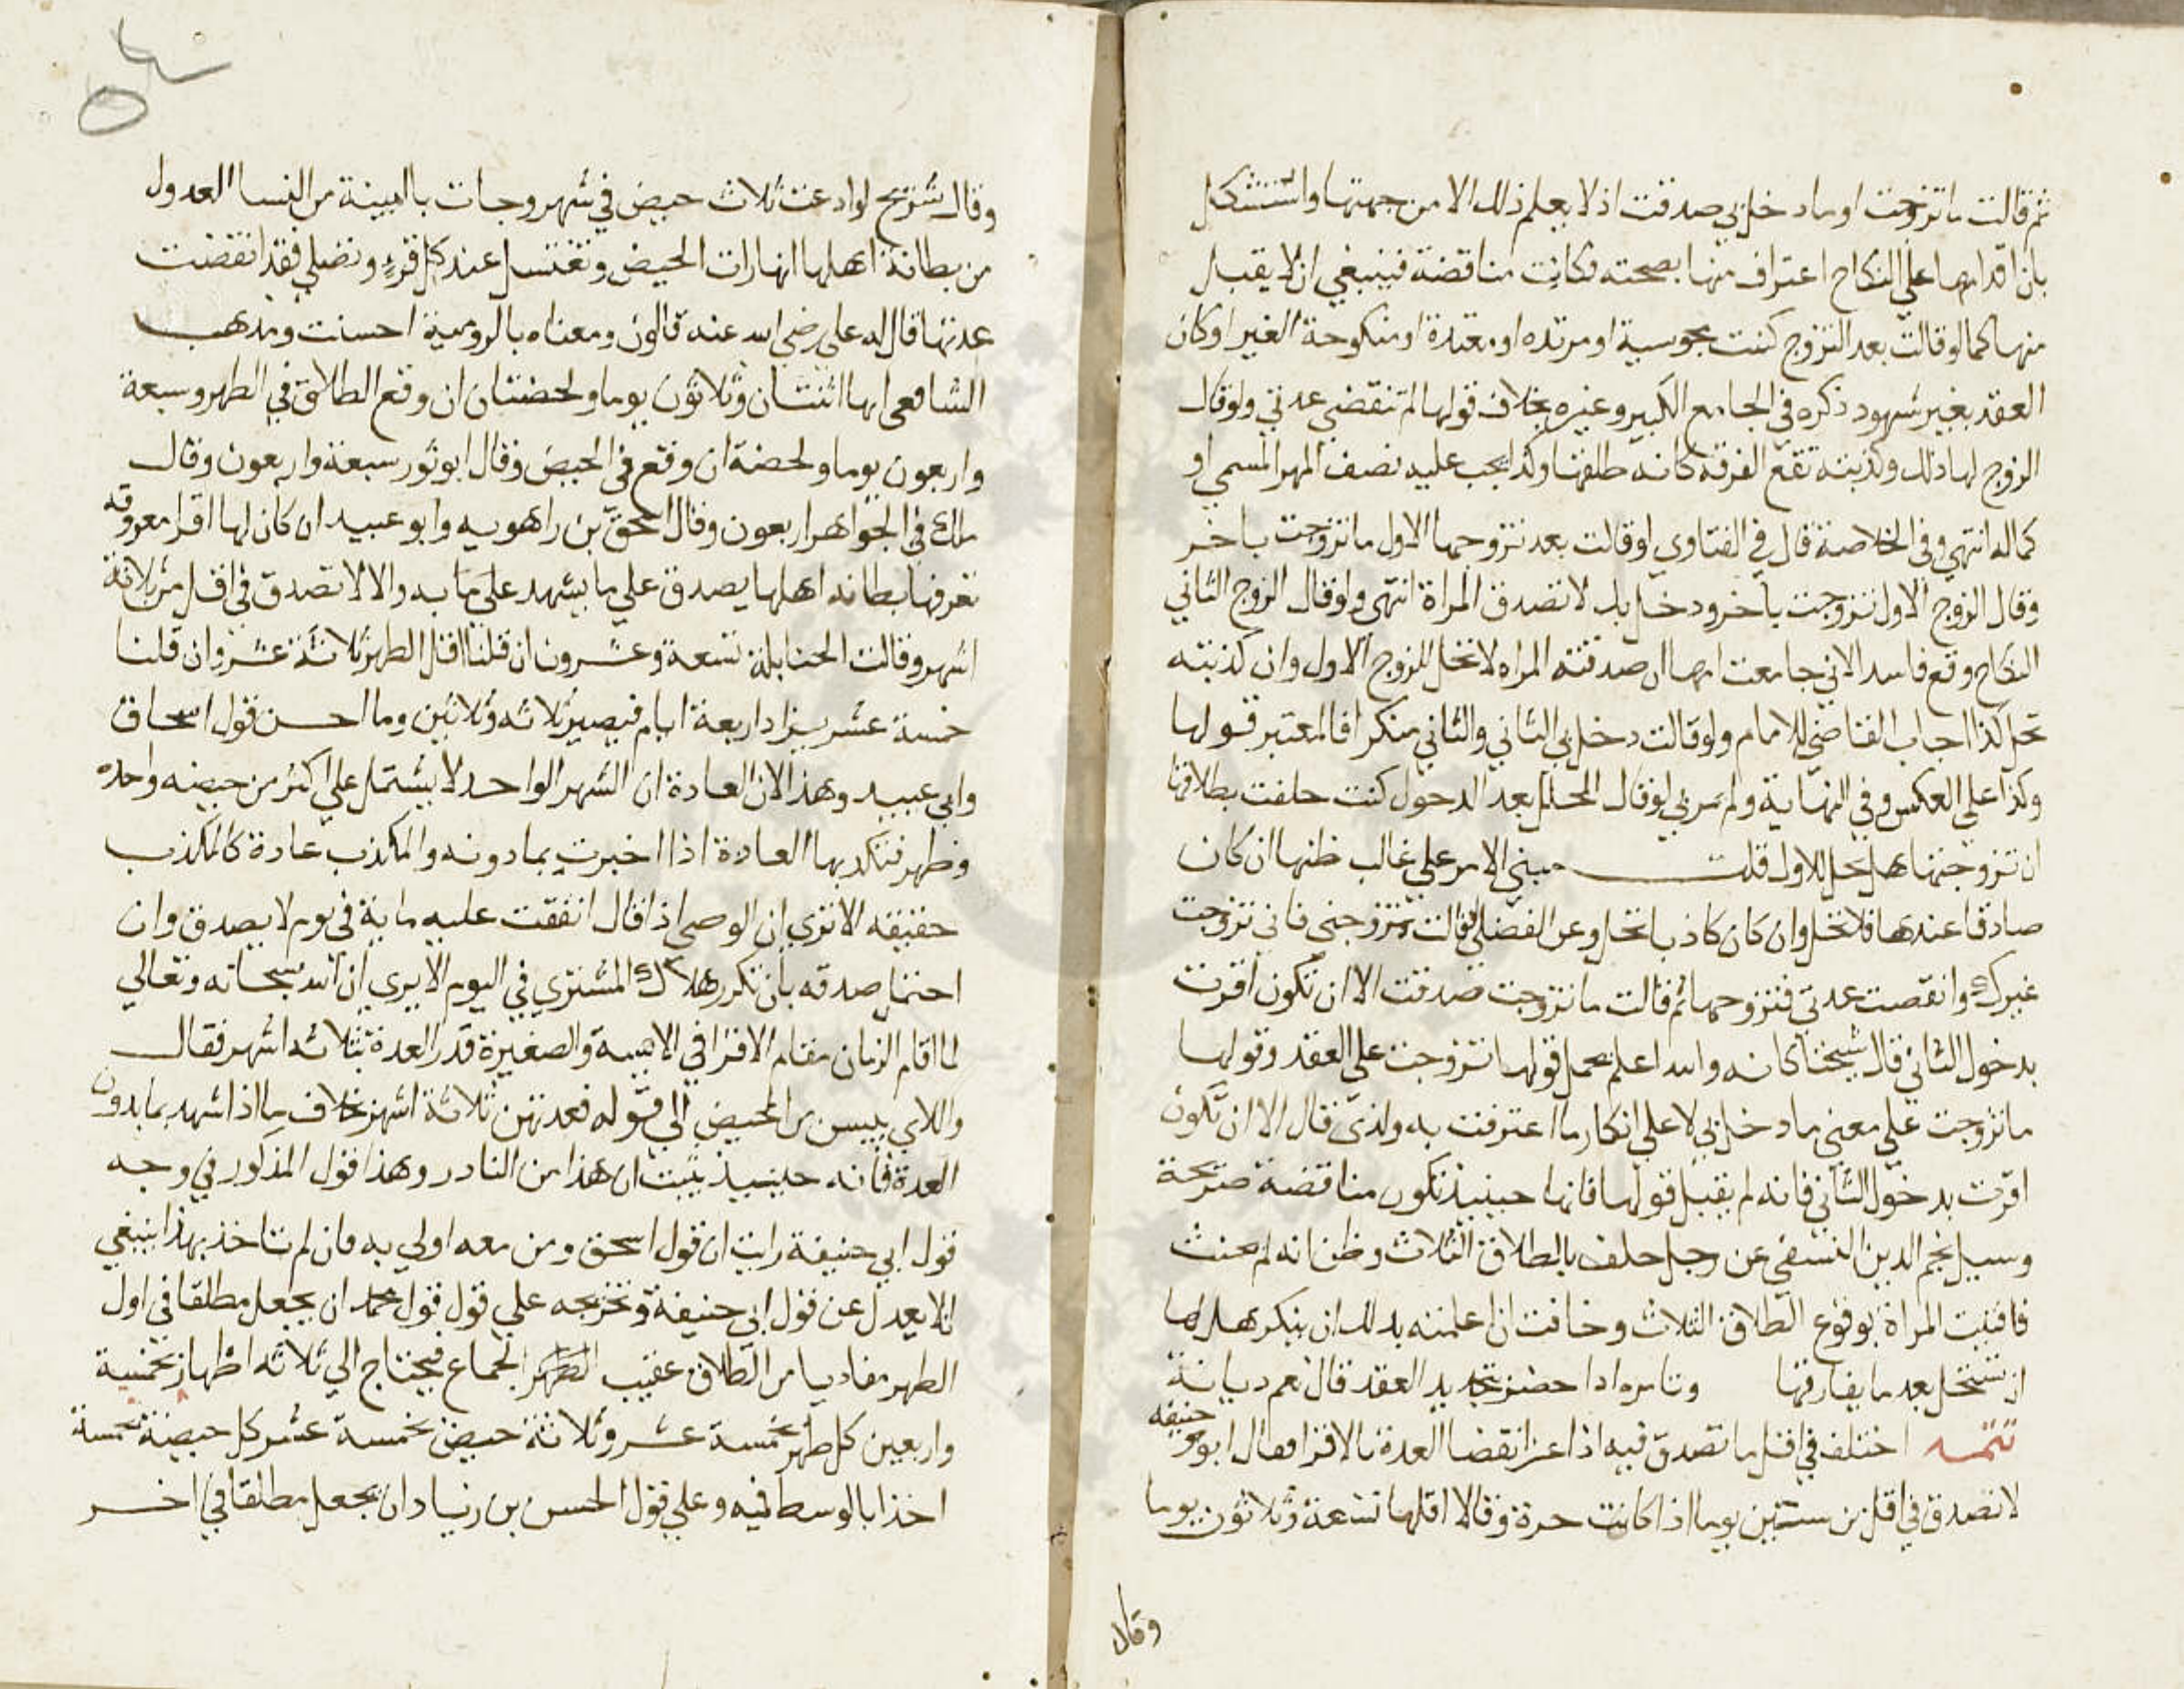 ثم قالت ما تزوجت او ما دخل بي صدقت اذ لا يعلم ذلك الا من جهتها واستشكل
بان اقدامها علي النكاح اعتراف منها بصحته فكانت مناقضة فينبغي ان لا يقبل
منها كما لو قالت بعد التزوج كنت مجوسية او مرتده او معتدة او منكوحة الغير او كان
العقد بغير شهود ذكره في الجامع الكبير وغيره بخلاف قولها لم تنقضي عدتي ولو قال
الزوج لها ذلك وكذبته تقع الفرقه كانه طلقها وكذا يجب عليه نصف المهر المسمي او
كماله انتهي وفي الخلاصة قال في الفتاوي لو قالت بعد تزوجها الاول ما تزوجت باخر
وقال الزوج الاول تزوجت باخر ودخل بك لا تصدق المراة انتهي ولو قال الزوج الثاني
النكاح وقع فاسد لاني جامعت امها ان صدقته المراه لا تحل للزوج الاول وان كذبته
تحل كذا اجاب القاضي الامام ولو قالت دخل بي الثاني والثاني منكر فالمعتبر قولها
وكذا علي العكس وفي النهاية ولم يمر بي لو قال المحلل بعد الدخول كنت حلفت بطلاقها
ان تزوجتها هل تحل للاول قلت يبني الامر علي غالب ظنها ان كان
صادقا عندها فلا تحل وان كان كاذبا تحل وعن الفضلي قالت تتزوجني فاني تزوجت
غيرك وانقضت عدتي فتزوجها ثم قالت ما تزوجت صدقت الا ان تكون اقرت
بدخول الثاني قال شيخنا كانه والله اعلم يحمل قولها تزوجت علي العقد وقولها
ما تزوجت علي معني ما دخل بي لا علي انكار ما اعترفت به ولذي قال الا ان تكون
اقرت بدخول الثاني فانه لم يقبل قولها فانها حينيذ تكون مناقضة صريحة
وسيل نجم الدين النسفي عن رجل حلف بالطلاق الثلاث وظن انه لم يحنث
فافتيت المراة بوقوع الطلاق الثلاث وخافت ان اعلمته بذلك ان ينكر هل لها
ان تستحل بعد ما يفارقها وتامره اذا حضر بتجديد العقد قال نعم ديانة
تتمه اختلف في اقل ما تصدق فيه اذا انقضا العدة بالاقرا فقال ابو حنيفه
لا تصدق في اقل من ستين يوما اذا كانت حرة وقالا اقلها تسعة وثلاثون يوما
وقال
وقال شريح لو ادعت ثلاث حيض في شهر وجات بالبينة من النسا العدول
من بطانة اهلها انها رات الحيض وتغتسل عند كل قرء وتصلي فقد انقضت
عدتها قال له علي رضي الله عنه قالون ومعناه بالرومية احسنت ومذهب
الشافعي انها اثنتان وثلاثون يوما ولحضتان ان وقع الطلاق في الطهر وسبعة
واربعون يوما ولحضة ان وقع في الحيض وقال ابو ثور سبعة واربعون وقال
مالك في الجواهر اربعون وقال اسحق بن راهويه وابو عبيد ان كان لها اقرا معروفه
تعرفها بطانه اهلها يصدق علي ما يشهد علي ما به والا لا تصدق في اقل من ثلاثة
اشهر وقالت الحنابلة تسعة وعشرون ان قلنا اقل الطهر ثلاثة عشر وان قلنا
خمسة عشر يزاد اربعة ايام فيصير ثلاثه وثلاثين وما احسن قول اسحاق
وابي عبيد وهذا لان العادة ان الشهر الواحد لا يشتمل علي اكثر من حيضه واحده
وطهر فتكذبها العادة اذا اخبرت بما دونه والمكذب عادة كالمكذب
حقيقه الا تري ان الوصي اذا قال انفقت عليه ماية في يوم لا يصدق وان
احتمل صدقه بان تكرر هلاك المشتري في اليوم الا يري ان الله سبحانه وتعالي
لما اقام الزمان مقام الاقرا في الايسة والصغيرة قدر العدة بثلاثه اشهر فقال
واللاي ييسن من المحيض الي قوله فعدتهن ثلاثة اشهر بخلاف ما اذا شهد بما بدون
العدة فانه حينيذ يثبت ان هذا من النادر وهذا قول المذكور في وجه
قول ابي حنيفة رايت ان قول اسحق ومن معه اولي به فان لم تاخذ بهذا ينبغي
ان لا يعدل عن قول ابي حنيفة وتخريجه علي قول قول محمد ان يجعل مطلقا في اول
الطهر مفاديا من الطلاق عقيب الطهر الجماع فيحتاج الي ثلاثه اطهار بخمسة
واربعين كل طهر بخمسة عشر وثلاثة حيض بخمسة عشر كل حيضة بخمسة
اخذا بالوسط فيه وعلي قول الحسن بن زياد ان يجعل مطلقا في اخر